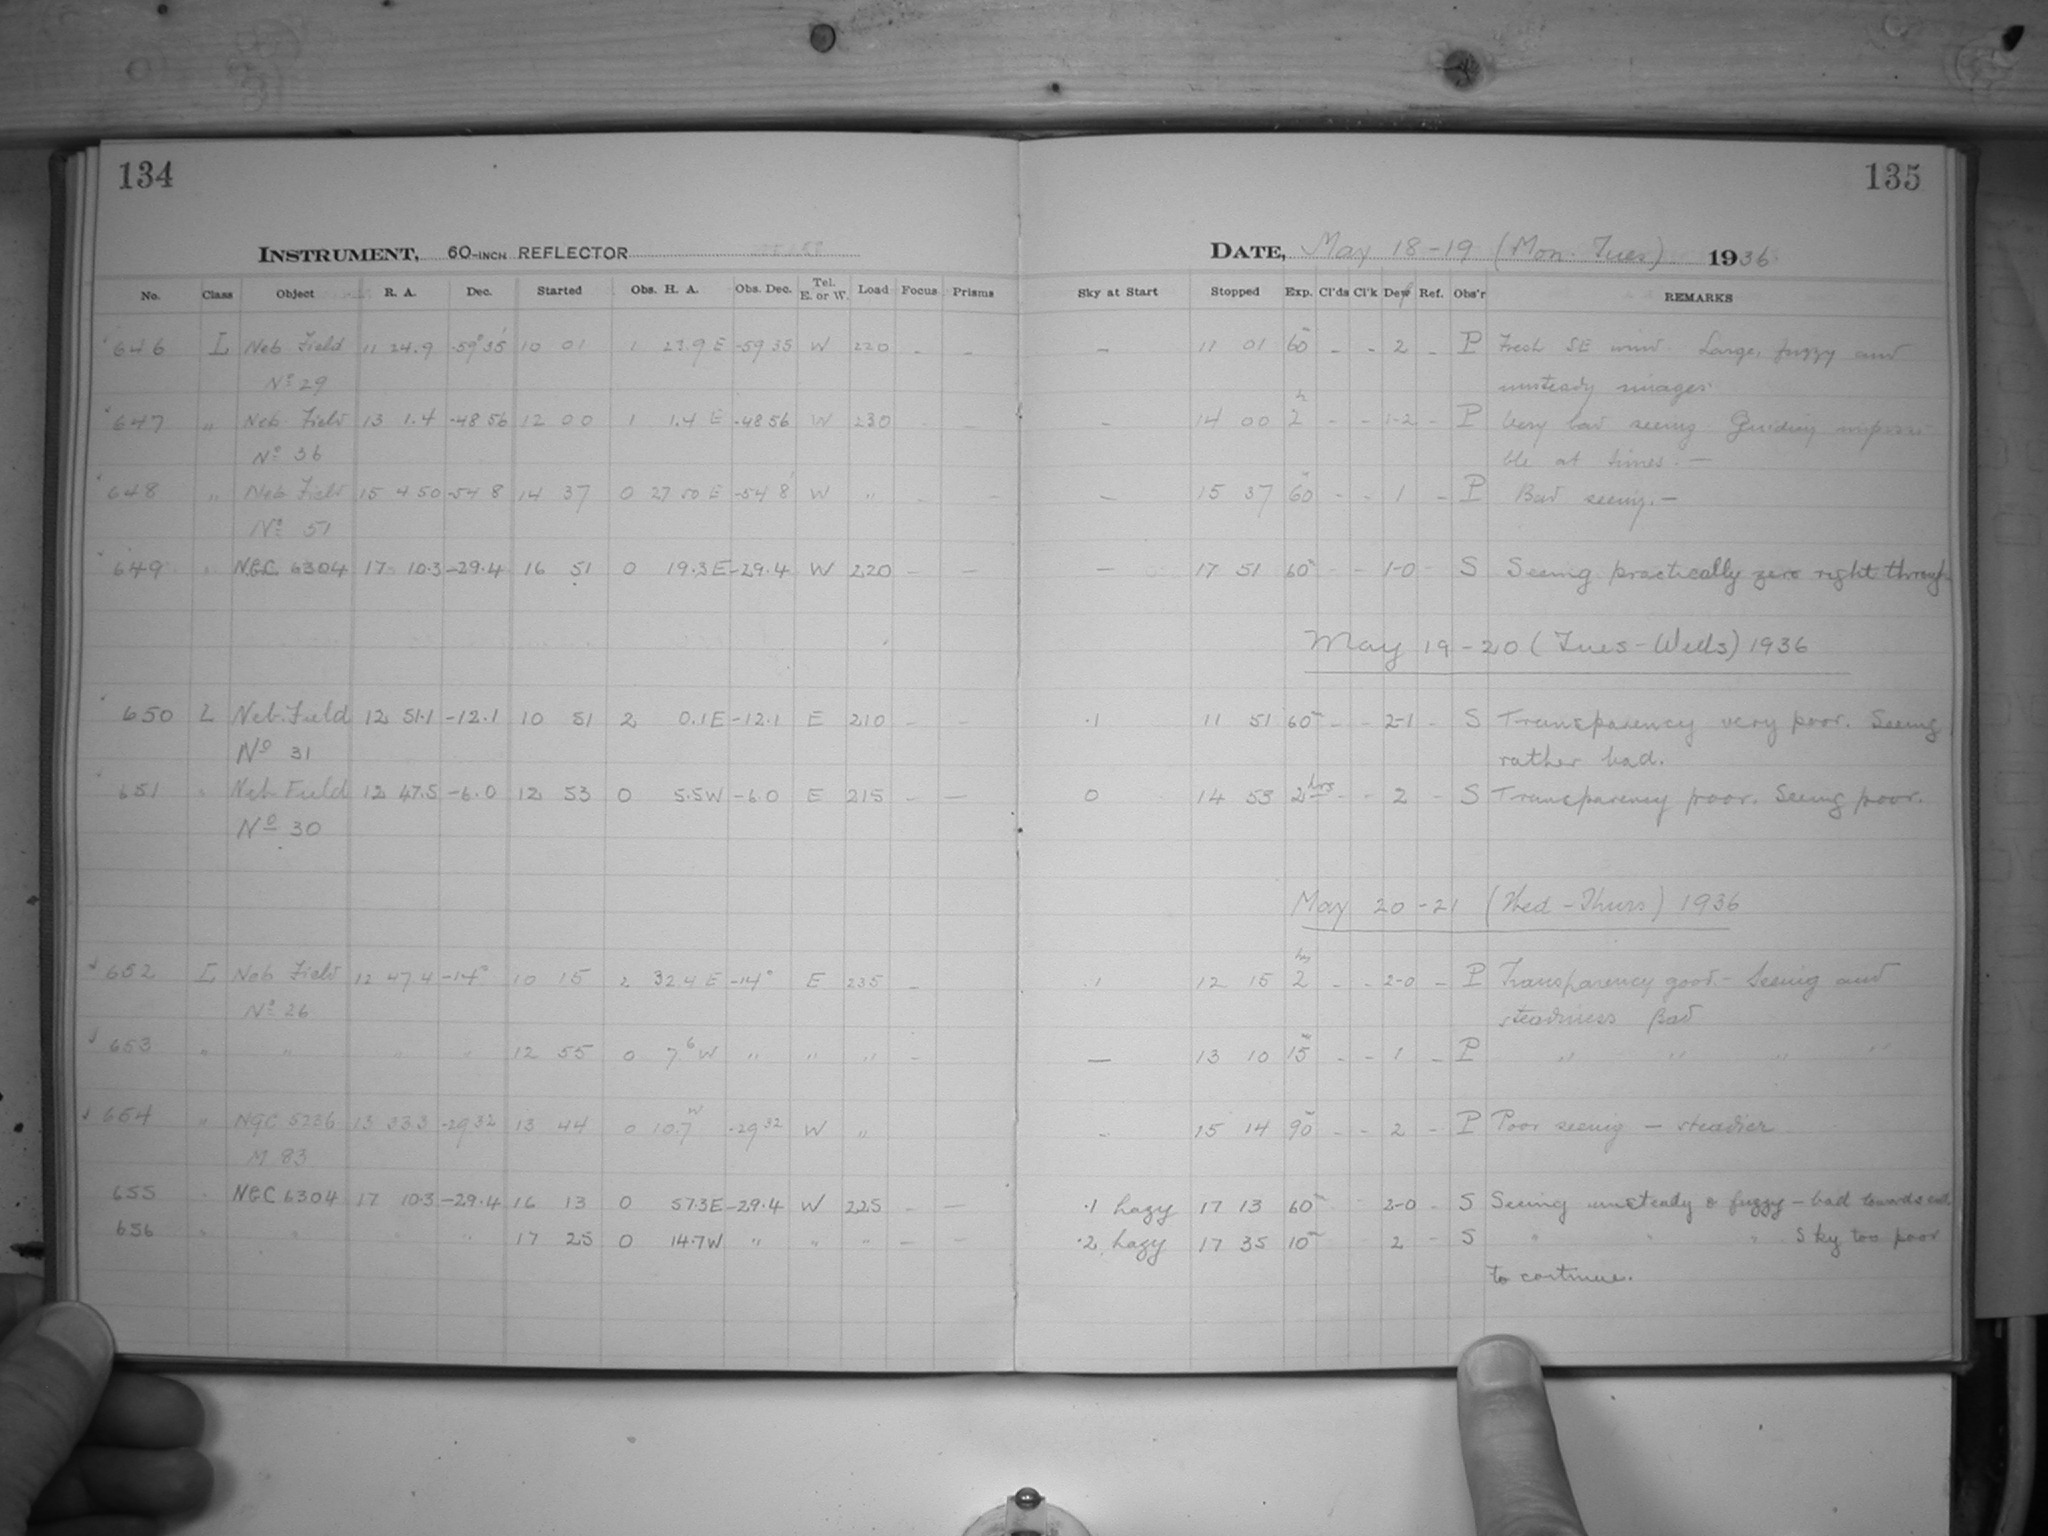 134
135
INSTRUMENT, 60-INCH REFLECTOR
DATE, May 18-19 (Mon. Tues) 1936
No. Class Object R. A. Dec. Started Obs. H. A. Obs. Dec. Tel. E. or W. Load Focus Prisms Sky at Start Stopped Exp. Cl'ds Cl'k Dew Ref. Obs'r REMARKS
646 L Neb Field 11 24.9 -59° 35' 10 01 1 23.9 E -59 35 W 220 - - - 11 01 60m - - 2 - P Fresh SE wind. Large, fuzzy and
No 29 unsteady images.
647 " Neb. Field 13 1.4 -48 56 12 00 1 1.4 E -48 56 W 230 - - - 14 00 2h - - 1-2 - P Very bad seeing. Guiding impossi-
No 36 ble at times. —
648 " Neb Field 15 4 50 -54 8 14 37 0 27 50 E -54 8' W " - - - 15 37 60m - - 1 - P Bad seeing. —
No 51
649 " NGC 6304 17 10.3 -29.4 16 51 0 19.3E -29.4 W 220 - - - 17 51 60m - - 1-0 - S Seeing practically zero right through.
May 19-20 (Tues-Weds) 1936
650 L Neb. Field 12 51.1 -12.1 10 51 2 0.1E -12.1 E 210 - - .1 11 51 60m - - 2-1 - S Transparency very poor. Seeing
No 31 rather bad.
651 " Neb Field 12 47.5 -6.0 12 53 0 5.5W -6.0 E 215 - - 0 14 53 2hrs - - 2 - S Transparency poor. Seeing poor.
No 30
May 20-21 (Wed-Thurs) 1936
652 L Neb Field 12 47.4 -14° 10 15 2 32.4 E -14° E 235 - .1 12 15 2hrs - - 2-0 - P Transparency good. - Seeing and
No 26 steadiness Bad
653 " " " " 12 55 0 7.6 W " " " - — 13 10 15m - - 1 - P " " " "
654 " NGC 5236 13 33.3 -29 32 13 44 0 10.7 W -29 32 W " - 15 14 90m - - 2 - P Poor seeing — steadier
M 83
655 " NGC 6304 17 10.3 -29.4 16 13 0 57.3E -29.4 W 225 - - .1 hazy 17 13 60m - 2-0 - S Seeing unsteady & fuzzy - bad towards end.
656 " " " " 17 25 0 14.7W " " " - - .2 hazy 17 35 10m 2 - S " " " Sky too poor
to continue.